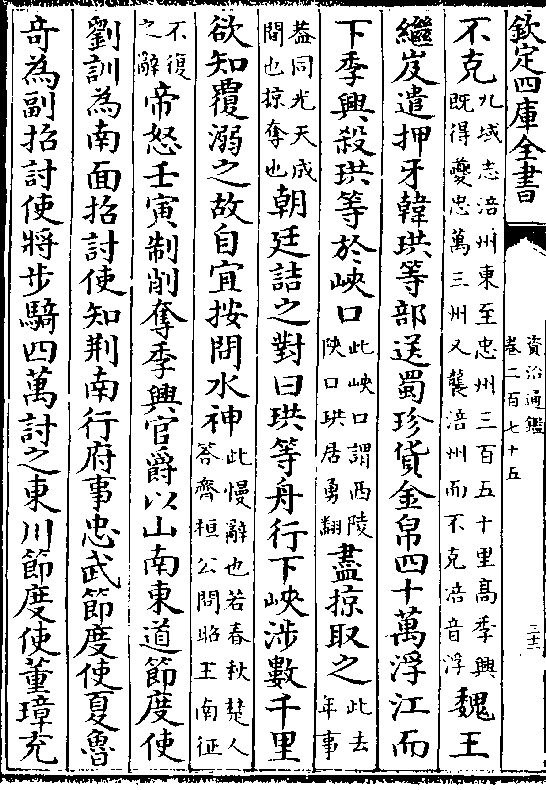 欽定四庫全書
資治通鑑
卷二百七十五
三十二
不克九域志涪州東至忠州三百五十里髙季興既得夔忠萬三州又襲涪州而不克涪音浮魏王
繼岌遣押牙韓珙等部送蜀珍貨金帛四十萬浮江而
下季興殺珙等於峽口此峽口謂西陵峽口珙居勇翻盡掠取之此去年事
葢同光天成間也掠奪也朝廷詰之對曰珙等舟行下峽涉數千里
欲知覆溺之故自宜按問水神此慢辭也若春秋楚人答齊桓公問昭王南征
不復之辭帝怒壬寅制削奪季興官爵以山南東道節度使
劉訓為南面招討使知荆南行府事忠武節度使夏魯
竒為副招討使將步騎四萬討之東川節度使董璋充